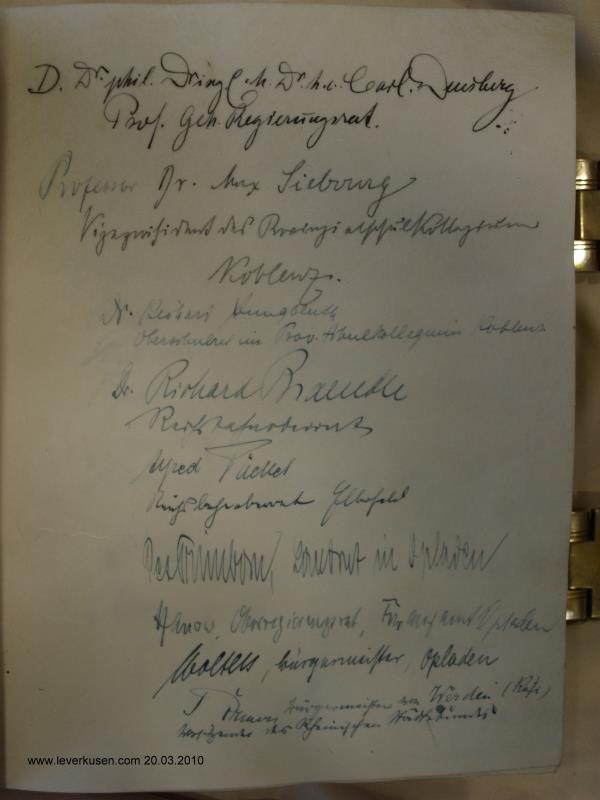 D. Dr. phil. Dr. ing. e.h. Dr. h.c. Carl Duisberg
Prof. Geh. Regierungsrat.
Professor Dr. Max Siebourg
Vizepräsident des Provinzialschulkollegiums
Koblenz.
Dr. Richard
im Prov. Schulkollegium Koblenz
Dr. Richard
Alfred
Elberfeld
Trimborn, Landrat in Opladen
Hanow, Oberregierungsrat, Finanzamt Opladen
Wolters, Bürgermeister, Opladen
Bürgermeister von Werden (Ruhr)
Vorsitzender des Rheinischen Städtebundes
www.leverkusen.com 20.03.2010